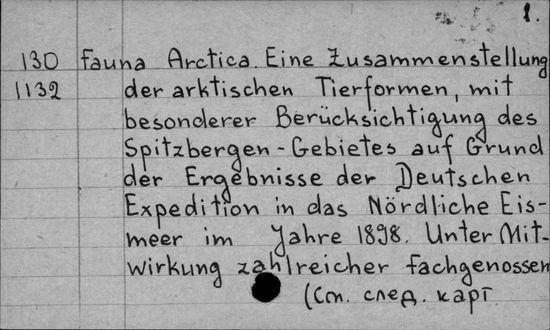 1.
130 Fauna Arctica. Eine Zusammenstellung
1132 der arktischen Tierformen, mit
besonderer Berücksichtigung des
Spitzbergen-Gebietes auf Grund
der Ergebnisse der Deutschen
Expedition in das Nördliche Eis-
meer im Jahre 1898. Unter Mit-
wirkung zahlreicher Fachgenossen
(См. след. карт